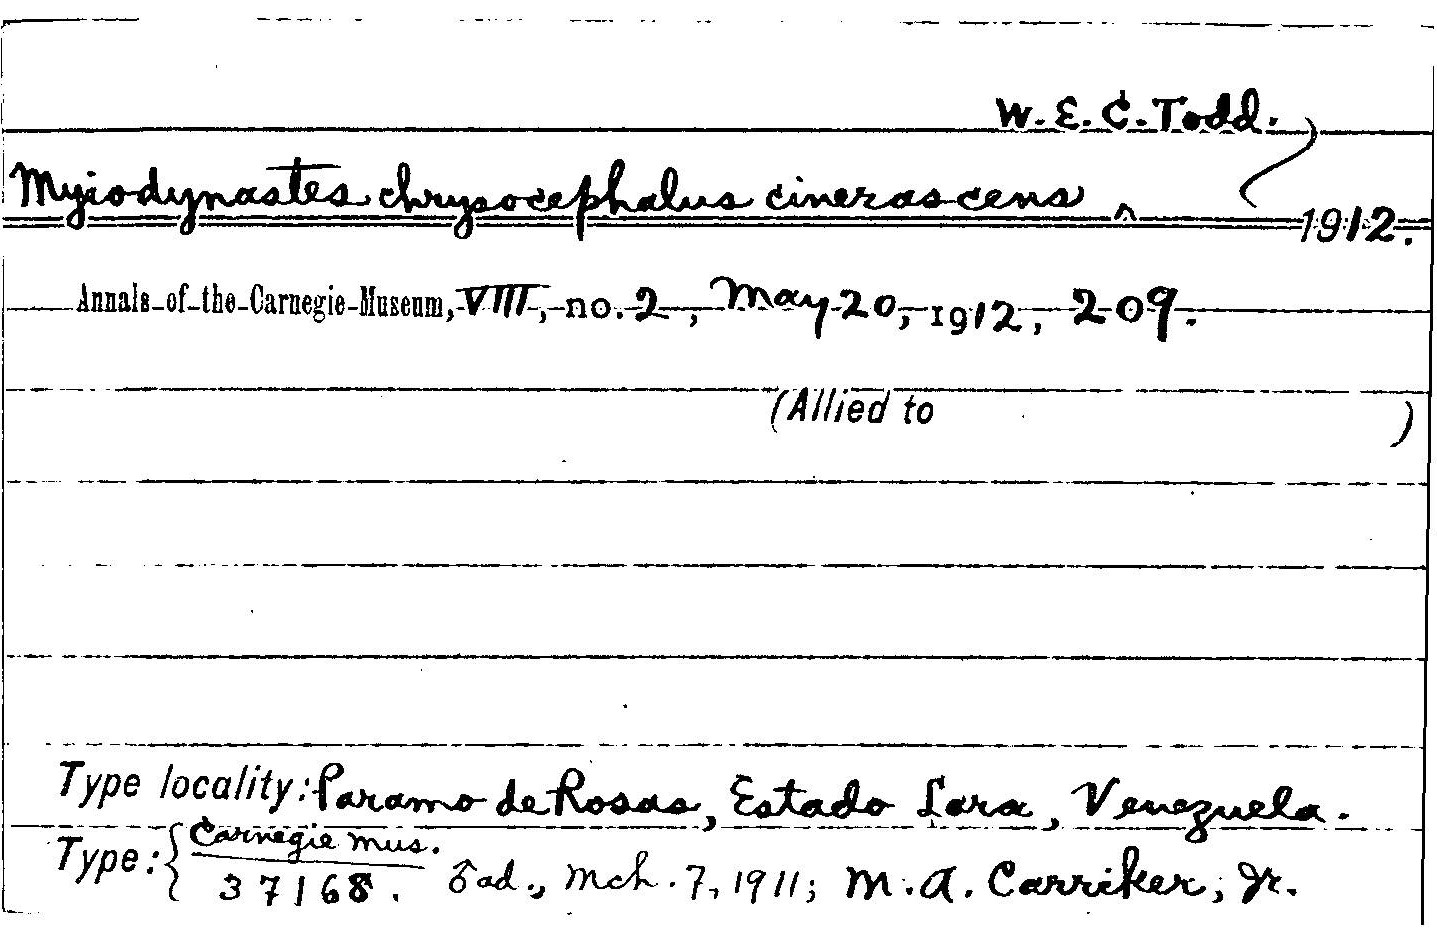 W. E. C. Todd.
Myiodynastes chrysocephalus cinerascens ^ 1912.
Annals of the Carnegie Museum, VIII, no. 2, May 20, 1912, 209.
(Allied to )
Type locality: Paramo de Rosas, Estado Lara, Venezuela.
Type: { Carnegie Mus.
37168. ♂ ad., Mch. 7, 1911; M. A. Carriker, Jr.